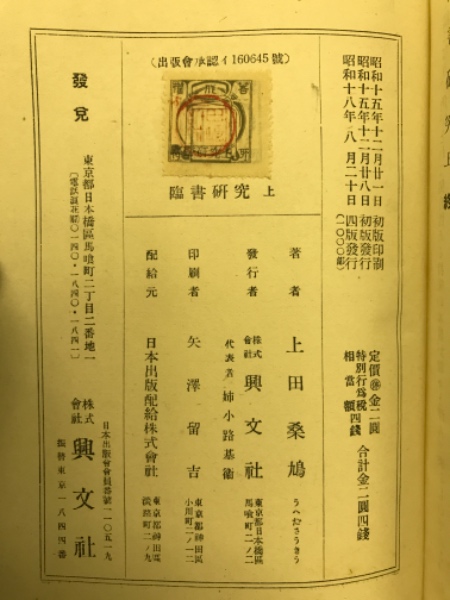 (出版會承認イ160645號)
臨書研究 上
昭和十五年十二月廿一日 初版印制
昭和十五年十二月廿八日 初版發行
昭和十八年八月二十日 四版發行
(一〇〇〇部)
定價㊞金二圓
特別行爲税
相當額 四錢
合計金二圓四錢
著者 上田桑鳩
發行者 株式會社 興文社
代表者 姉小路基衛
東京都日本橋區
馬喰町二ノ二
印刷者 矢澤留吉
東京都神田區
小川町二ノ一二
配給元 日本出版配給株式會社
東京都神田區
淡路町二ノ九
發兌
東京都日本橋區馬喰町二丁目二番地一
株式會社 興文社
日本出版會會員番號一一〇五一九
振替東京一八四四番